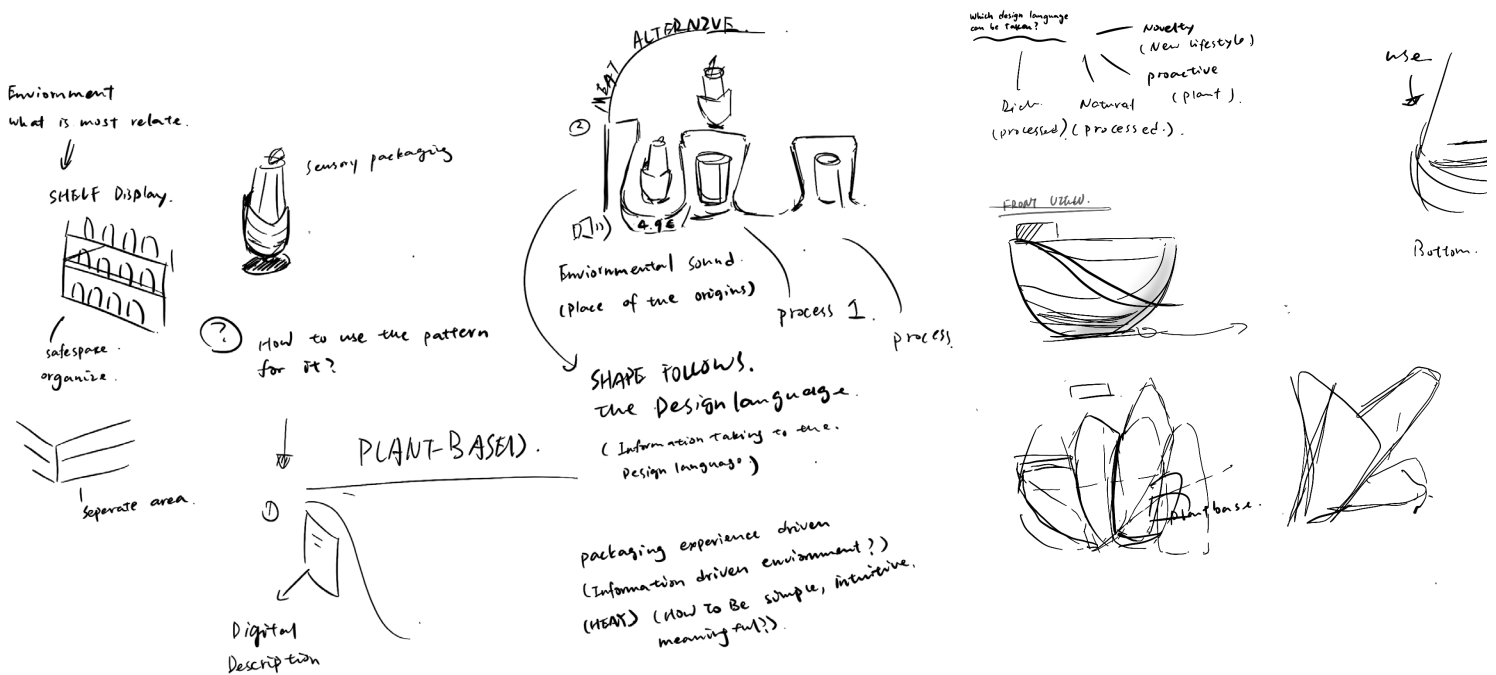 Enviornment
what is most relate.
SHELF Display.
safespace.
organize.
seperate area.
sensory packaging
?
How to use the pattern
for it?
PLANT-BASED.
1
Digital
Description
MEAT ALTERNZVE
2
4.9€
Enviornmental sound.
(Place of the origins)
process 1.
process
SHAPE FOLLOWS.
the Design language.
(Information taking to the.
Design language)
packaging experience driven
(Information driven enviornment?)
(HEAT) (How to Be simple, intuitive,
meaningful?).
Which design language
can be taken?
Novelty
(New lifestyle)
proactive
(plant).
Rich.
(processed)
Natural
(processed.).
FRONT VIEW.
plantbase.
use
Bottom.